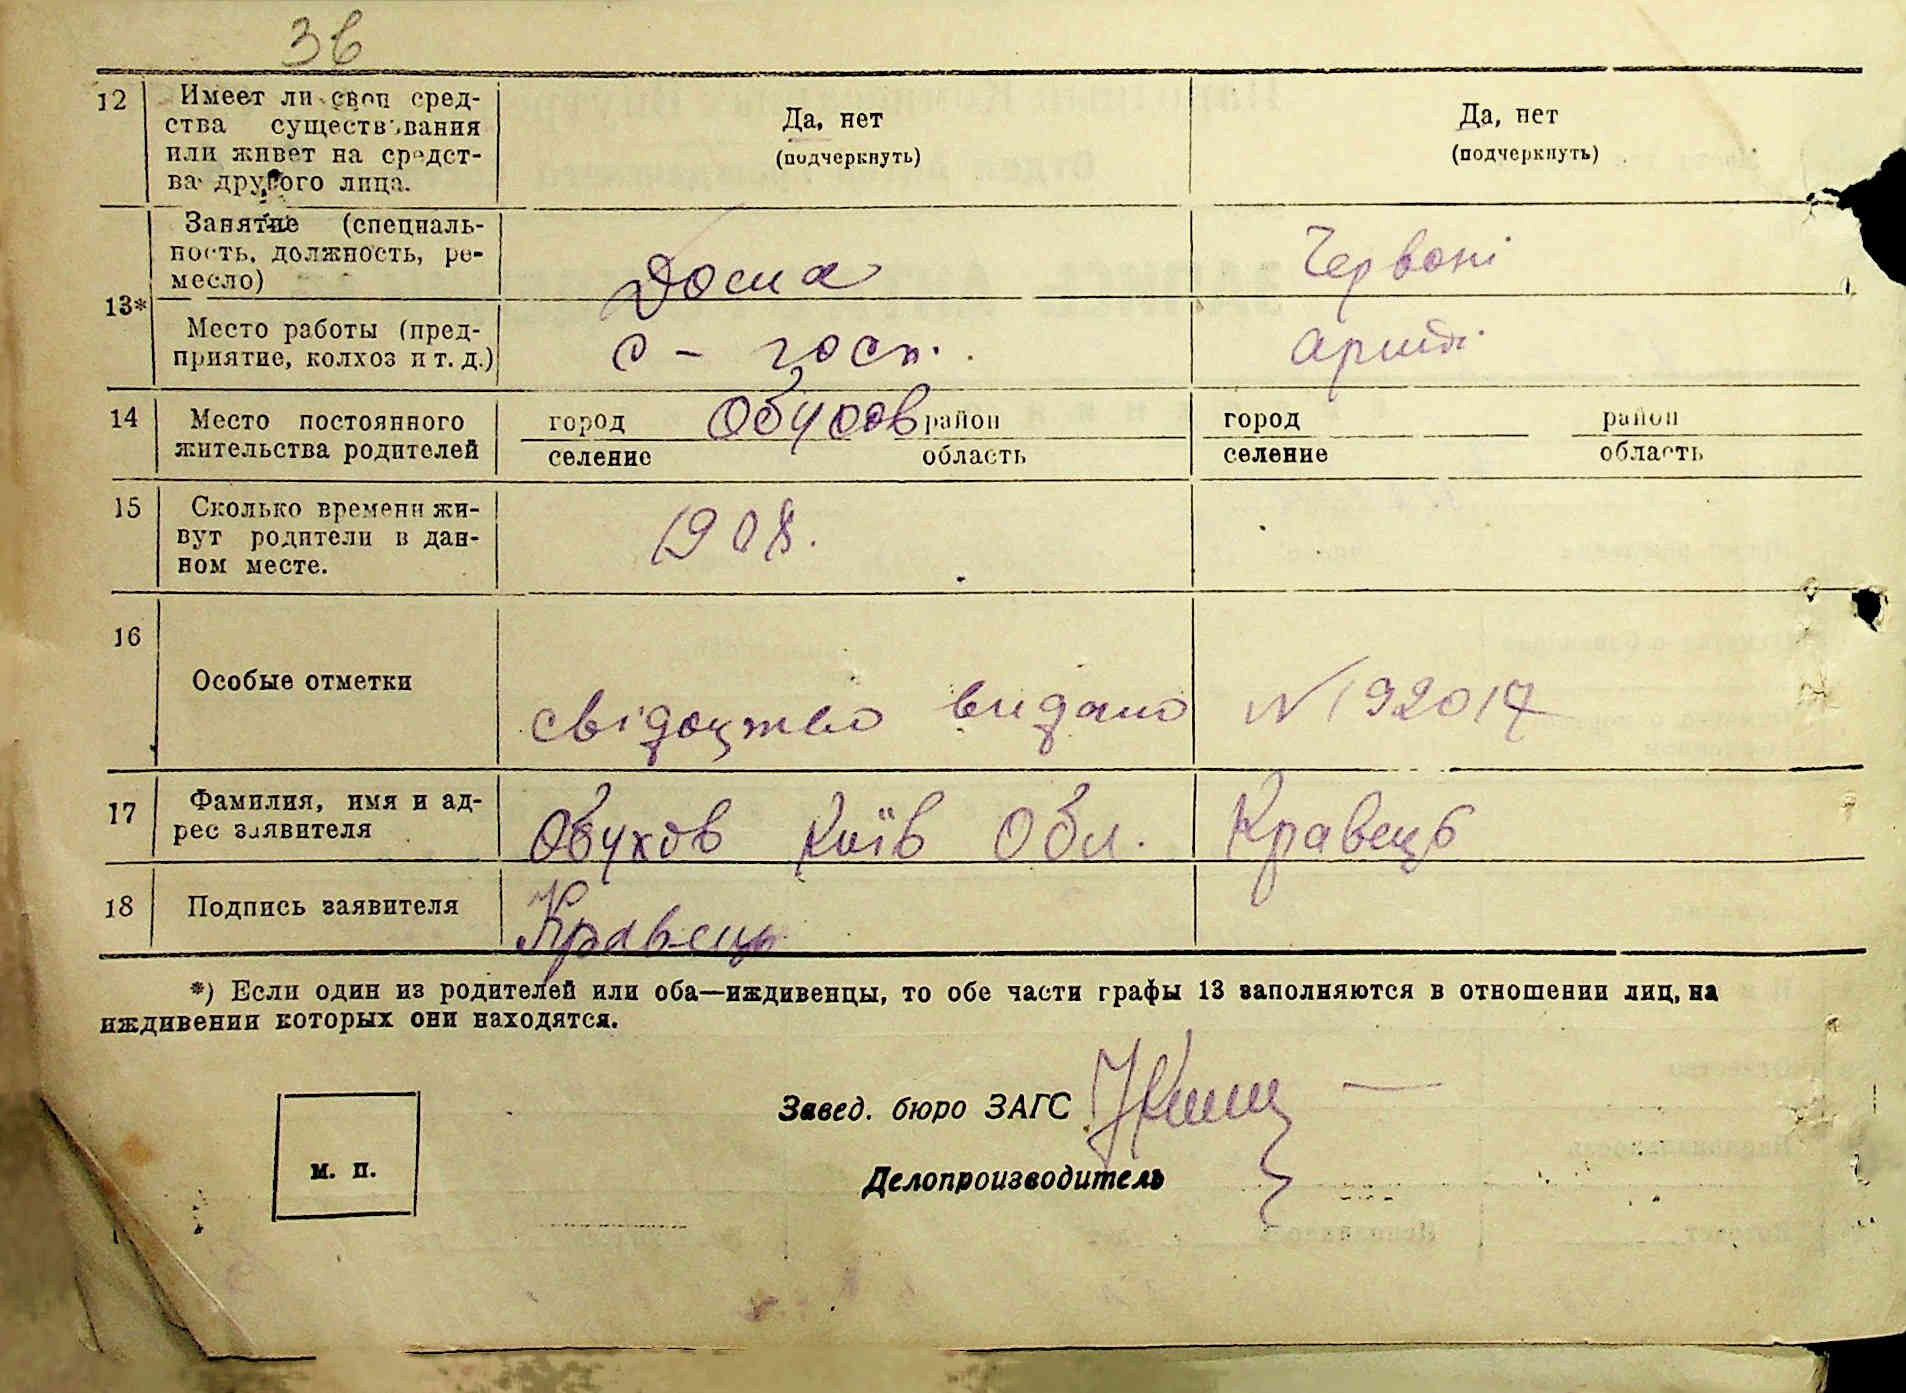 36
12
Имеет ли свои сред-
ства существования
или живет на средст-
ва другого лица.
Да, нет
(подчеркнуть)
Да, нет
(подчеркнуть)
13*
Занятие (специаль-
ность, должность, ре-
месло)
Дома
Червоні
Место работы (пред-
приятие, колхоз и т. д.)
с - госп.
армії
14
Место постоянного
жительства родителей
город Обухов район
селение область
город район
селение область
15
Сколько времени жи-
вут родители в дан-
ном месте.
1908.
16
Особые отметки
свідоцтво видано N 192017
17
Фамилия, имя и ад-
рес заявителя
Обухов Київ Обл. Кравець
18
Подпись заявителя
Кравець
*) Если один из родителей или оба—иждивенцы, то обе части графы 13 заполняются в отношении лиц, на
иждивении которых они находятся.
Завед. бюро ЗАГС
м. п.
Делопроизводитель